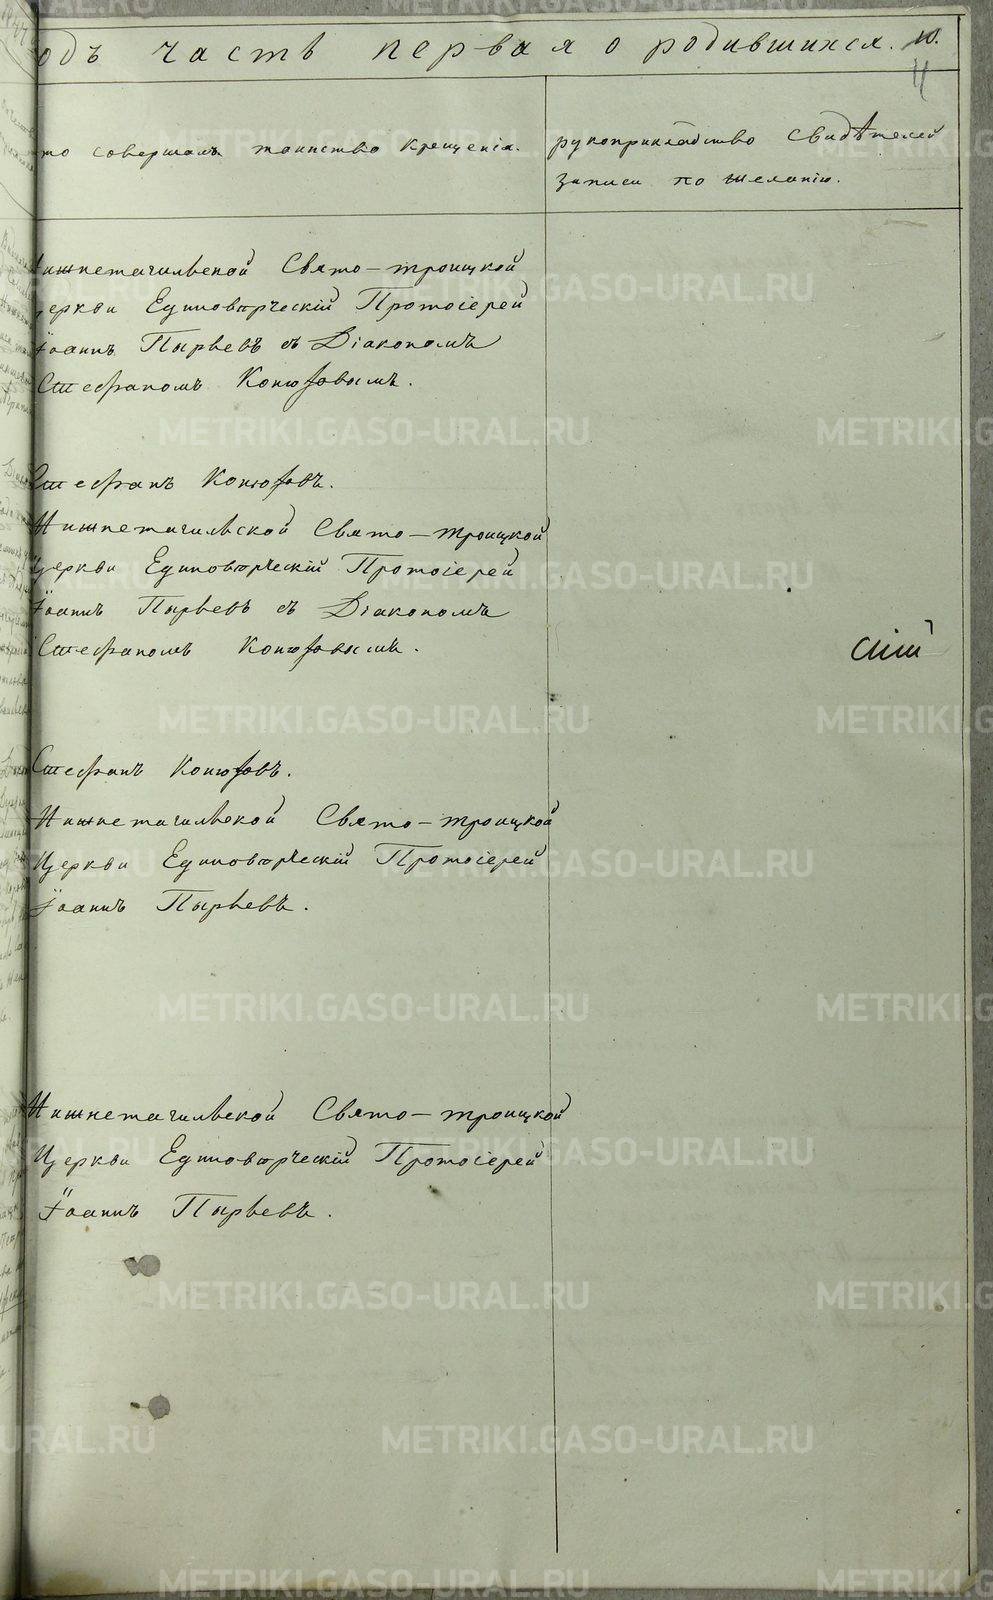 одъ часть первая о родившихся. 10.
11
то совершалъ таинство Крещенія.
рукоприкладство свидѣтелей
записи по желанію.
Нижнетагильской Свято-троицкой
Церкви Единовѣрческій Протоіерей
Іоаннъ Пырьевъ съ Діакономъ
Стефаномъ Конюховымъ.
Стефанъ Конюховъ.
Нижнетагильской Свято-троицкой
Церкви Единовѣрческій Протоіерей
Іоаннъ Пырьевъ съ Діакономъ
Стефаномъ Конюховымъ.
Стефанъ Конюховъ.
Нижнетагильской Свято-троицкой
Церкви Единовѣрческій Протоіерей
Іоаннъ Пырьевъ.
Нижнетагильской Свято-троицкой
Церкви Единовѣрческій Протоіерей
Іоаннъ Пырьевъ.
METRIKI.GASO-URAL.RU